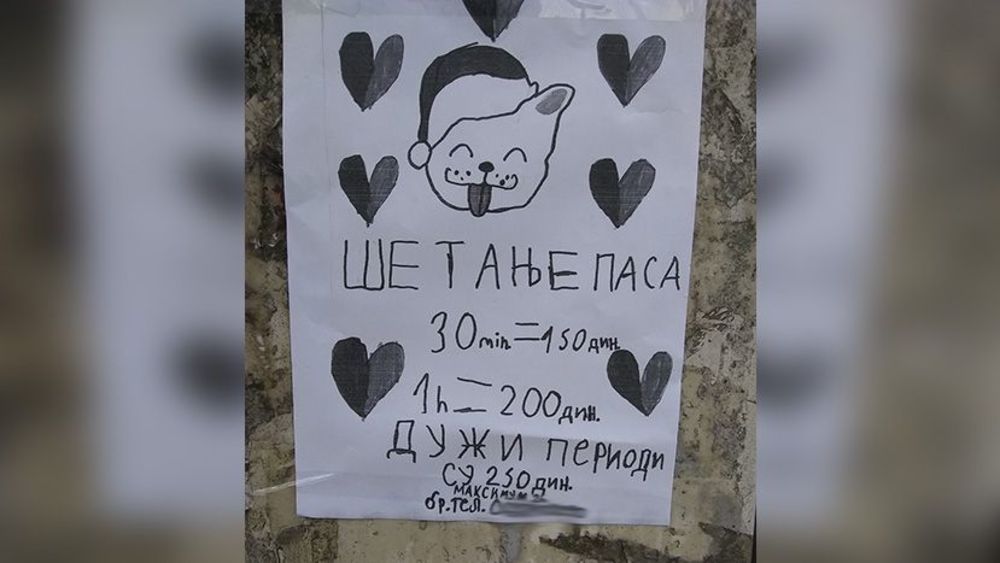 ШЕТАЊЕ ПАСА
30min=150дин.
1h=200дин.
ДУЖИ ПЕРИОДИ
СУ 250дин.
МАКСИМУМ
бр.тел.